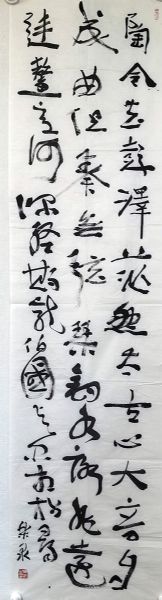 陶令去彭澤茫然太古心大音自
成曲但奏無弦琴釣水路非遠
連鼇意何深終期龍伯國與尔相招尋
樂泉